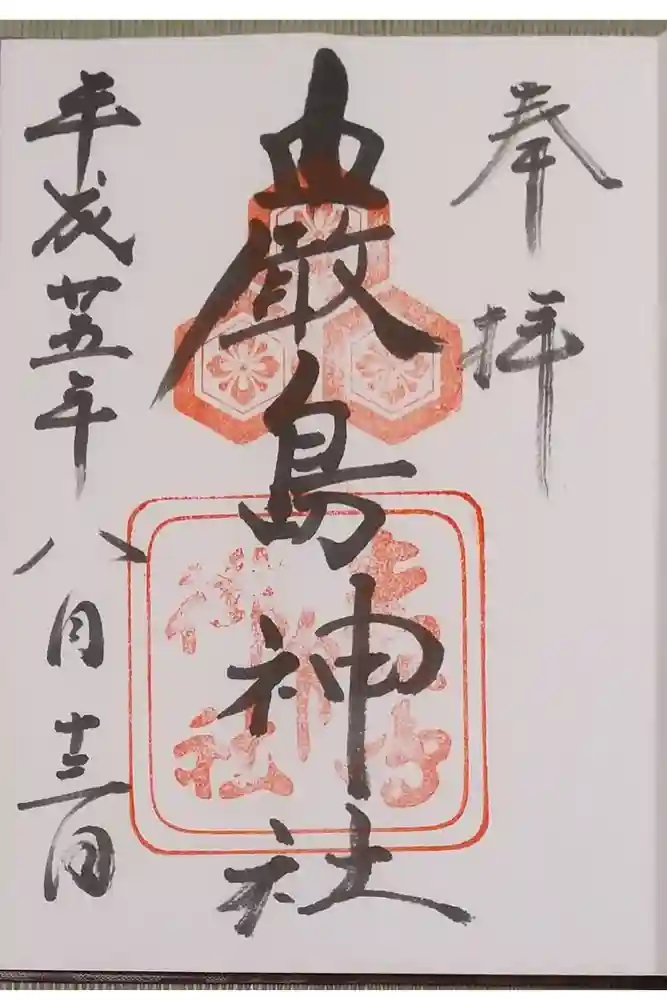 奉拝
嚴島神社
平成廿五年八月十三日